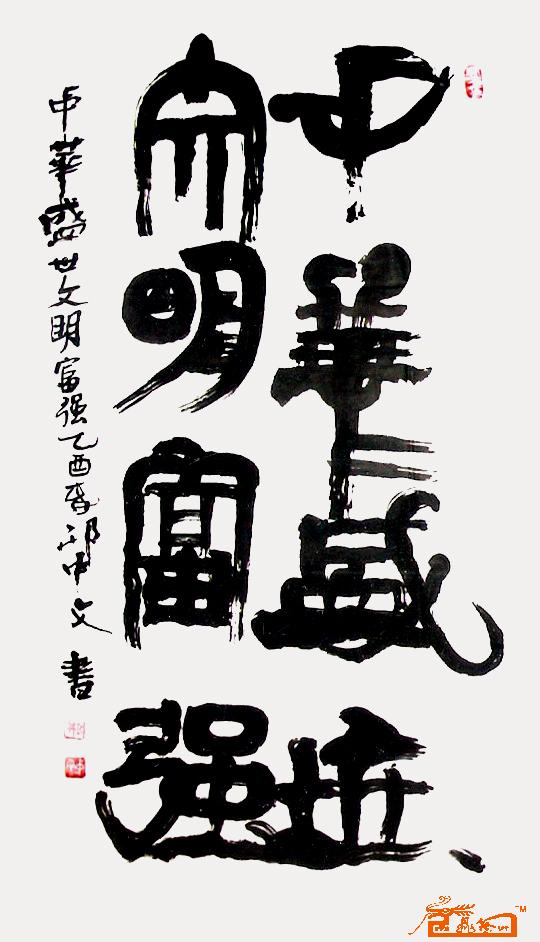 中華盛世
文明富强
中華盛世文明富强乙酉春祁中文書